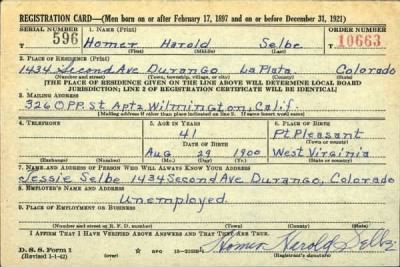 REGISTRATION CARD—(Men born on or after February 17, 1897 and on or before December 31, 1921)
SERIAL NUMBER 1. NAME (Print) ORDER NUMBER
596 Homer Harold Selbe 10663
(First) (Middle) (Last)
2. PLACE OF RESIDENCE (Print)
1434 Second Ave Durango La Plata Colorado
(Number and street) (Town, township, village, or city) (County) (State)
[THE PLACE OF RESIDENCE GIVEN ON THE LINE ABOVE WILL DETERMINE LOCAL BOARD
JURISDICTION; LINE 2 OF REGISTRATION CERTIFICATE WILL BE IDENTICAL]
3. MAILING ADDRESS
326 O PP. St Apts Wilmington, Calif.
[Mailing address if other than place indicated on line 2. If same insert word same]
4. TELEPHONE 5. AGE IN YEARS 6. PLACE OF BIRTH
41 Pt. Pleasant
DATE OF BIRTH (Town or county)
Aug 29 1900 West Virginia
(Exchange) (Number) (Mo.) (Day) (Yr.) (State or country)
7. NAME AND ADDRESS OF PERSON WHO WILL ALWAYS KNOW YOUR ADDRESS
Jessie Selbe 1434 Second Ave Durango, Colorado
8. EMPLOYER'S NAME AND ADDRESS
Unemployed.
9. PLACE OF EMPLOYMENT OR BUSINESS
(Number and street or R. F. D. number) (Town) (County) (State)
I AFFIRM THAT I HAVE VERIFIED ABOVE ANSWERS AND THAT THEY ARE TRUE.
D. S. S. Form 1
(Revised 1-1-42) (over) GPO Homer Harold Selbe